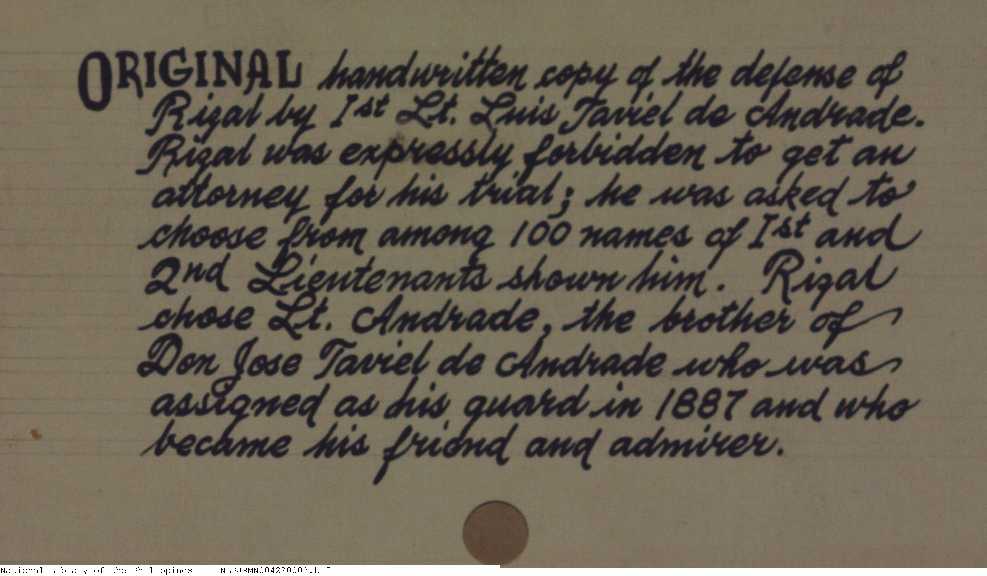 ORIGINAL handwritten copy of the defense of
Rizal by 1st Lt. Luis Taviel de Andrade.
Rizal was expressly forbidden to get an
attorney for his trial; he was asked to
choose from among 100 names of 1st and
2nd Lieutenants shown him. Rizal
chose Lt. Andrade, the brother of
Don Jose Taviel de Andrade who was
assigned as his guard in 1887 and who
became his friend and admirer.
National Library of the Philippines